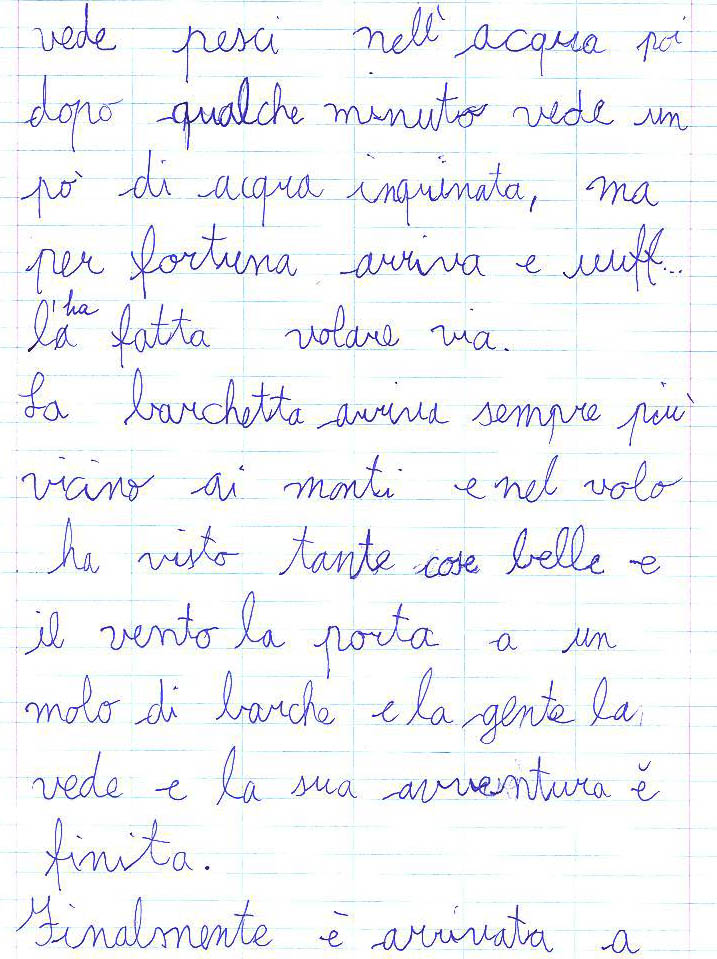 vede pesci nell'acqua poi
dopo qualche minuto vede un
pò di acqua inquinata, ma
per fortuna arriva e uuff...
la ha fatta volare via.
La barchetta arriva sempre più
vicino ai monti e nel volo
ha visto tante cose belle e
il vento la porta a un
molo di barche e la gente la
vede e la sua avventura è
finita.
Finalmente è arrivata a